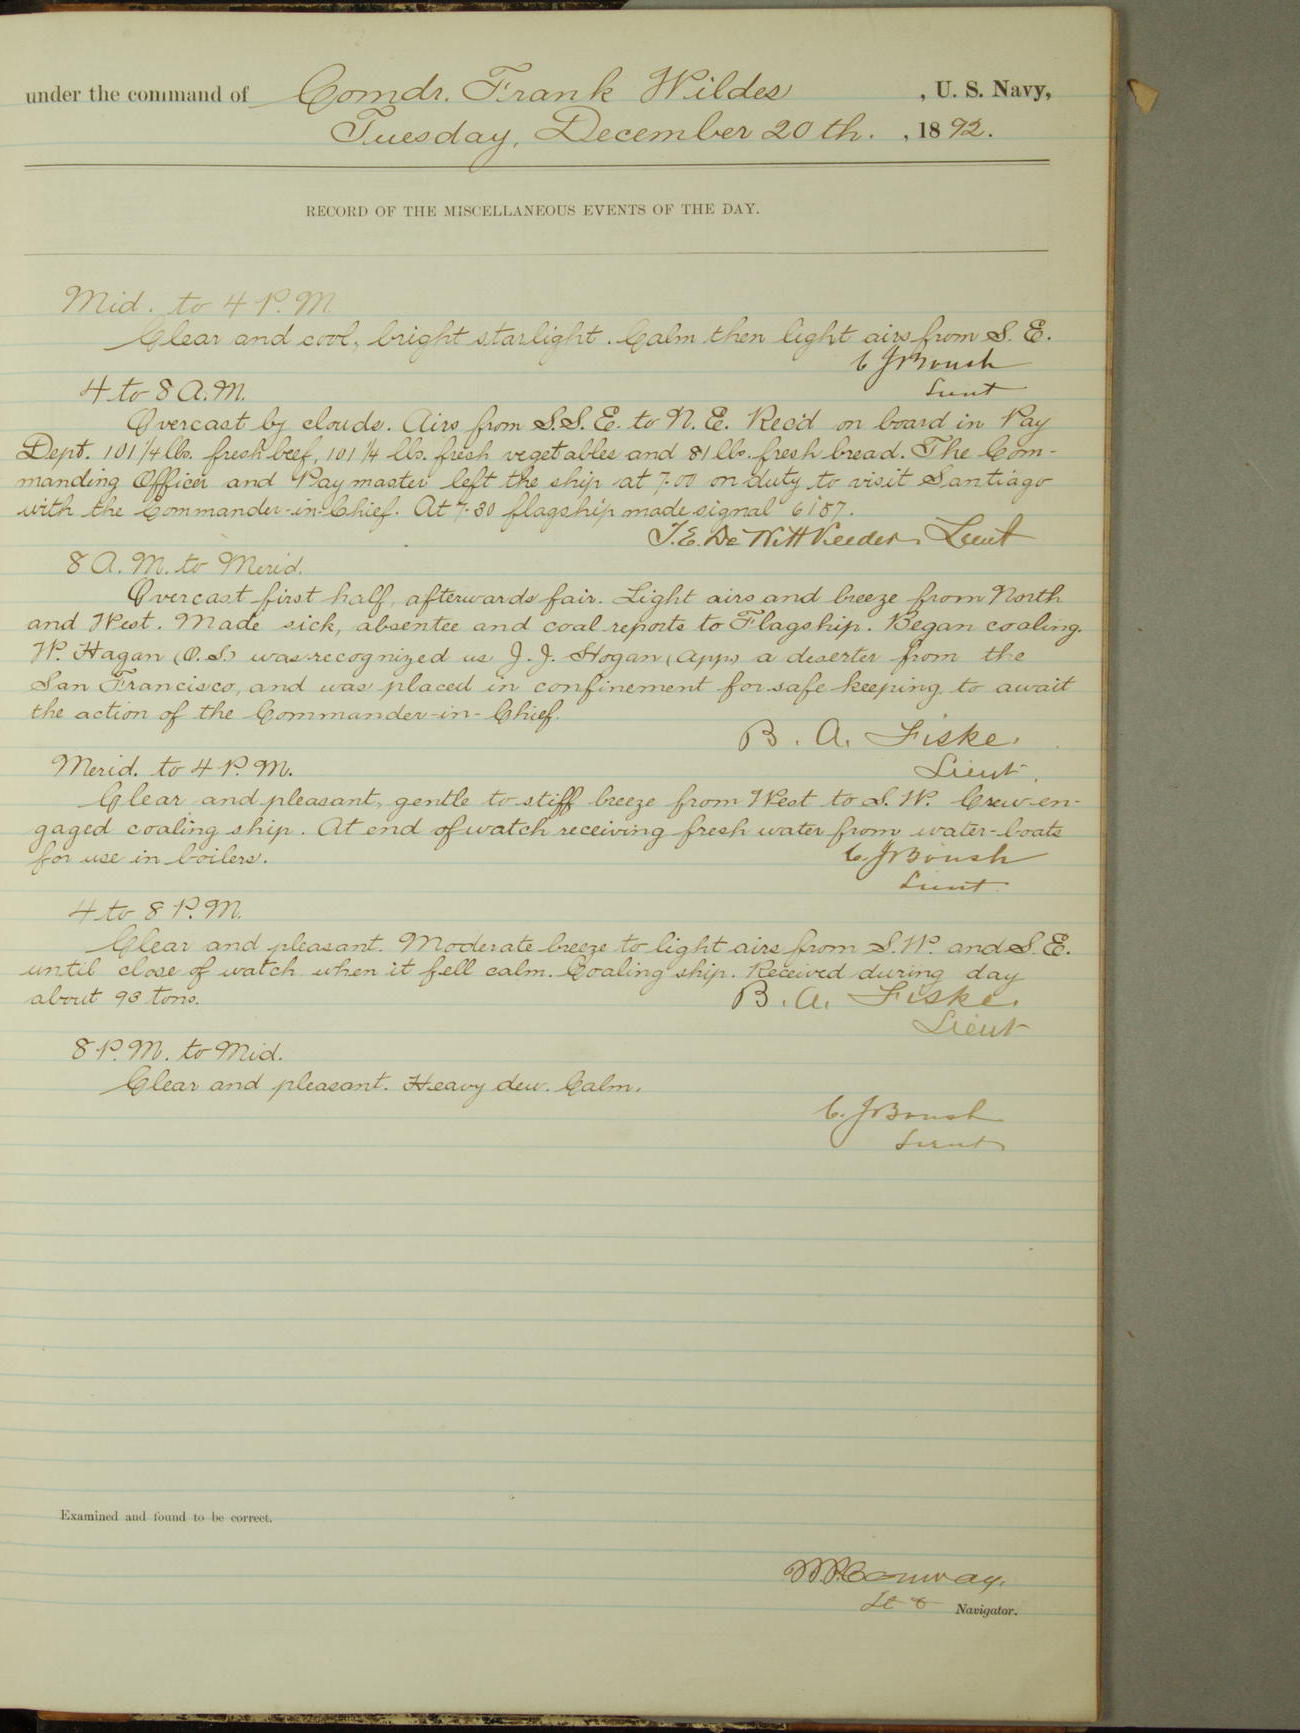 under the command of Comdr. Frank Wildes, U. S. Navy,
Tuesday, December 20th., 1892.
RECORD OF THE MISCELLANEOUS EVENTS OF THE DAY.
Mid. to 4 P.M.
Clear and cool, bright starlight. Calm then light airs from S. E.
C J Boush
Lieut
4 to 8 A.M.
Overcast by clouds. Airs from S.S.E. to N.E. Rec'd on board in Pay
Dept. 101 1/4 lbs. fresh beef, 101 1/4 lbs. fresh vegetables and 81 lbs. fresh bread. The Com-
manding Officer and Paymaster left the ship at 7-00 on duty to visit Santiago
with the Commander-in-Chief. At 7-30 flagship made signal 6187.
T.E. De Witt Veeder, Lieut
8 A.M. to Merid.
Overcast first half, afterwards fair. Light airs and breeze from North
and West. Made sick, absentee and coal reports to Flagship. Began coaling.
W. Hagan (O.S.) was recognized as J. J. Hogan (App.) a deserter from the
San Francisco, and was placed in confinement for safe keeping to await
the action of the Commander-in-Chief.
B. A. Fiske.
Lieut.
Merid. to 4 P.M.
Clear and pleasant, gentle to stiff breeze from West to S.W. Crew en-
gaged coaling ship. At end of watch receiving fresh water from water-boats
for use in boilers.
C. J Boush
Lieut.
4 to 8 P.M.
Clear and pleasant. Moderate breeze to light airs from S.W. and S.E.
until close of watch when it fell calm. Coaling ship. Received during day
about 93 tons.
B. A. Fiske.
Lieut
8 P.M. to Mid.
Clear and pleasant. Heavy dew. Calm.
C. J Boush
Lieut
Examined and found to be correct.
W.P. Conway.
Lt & Navigator.